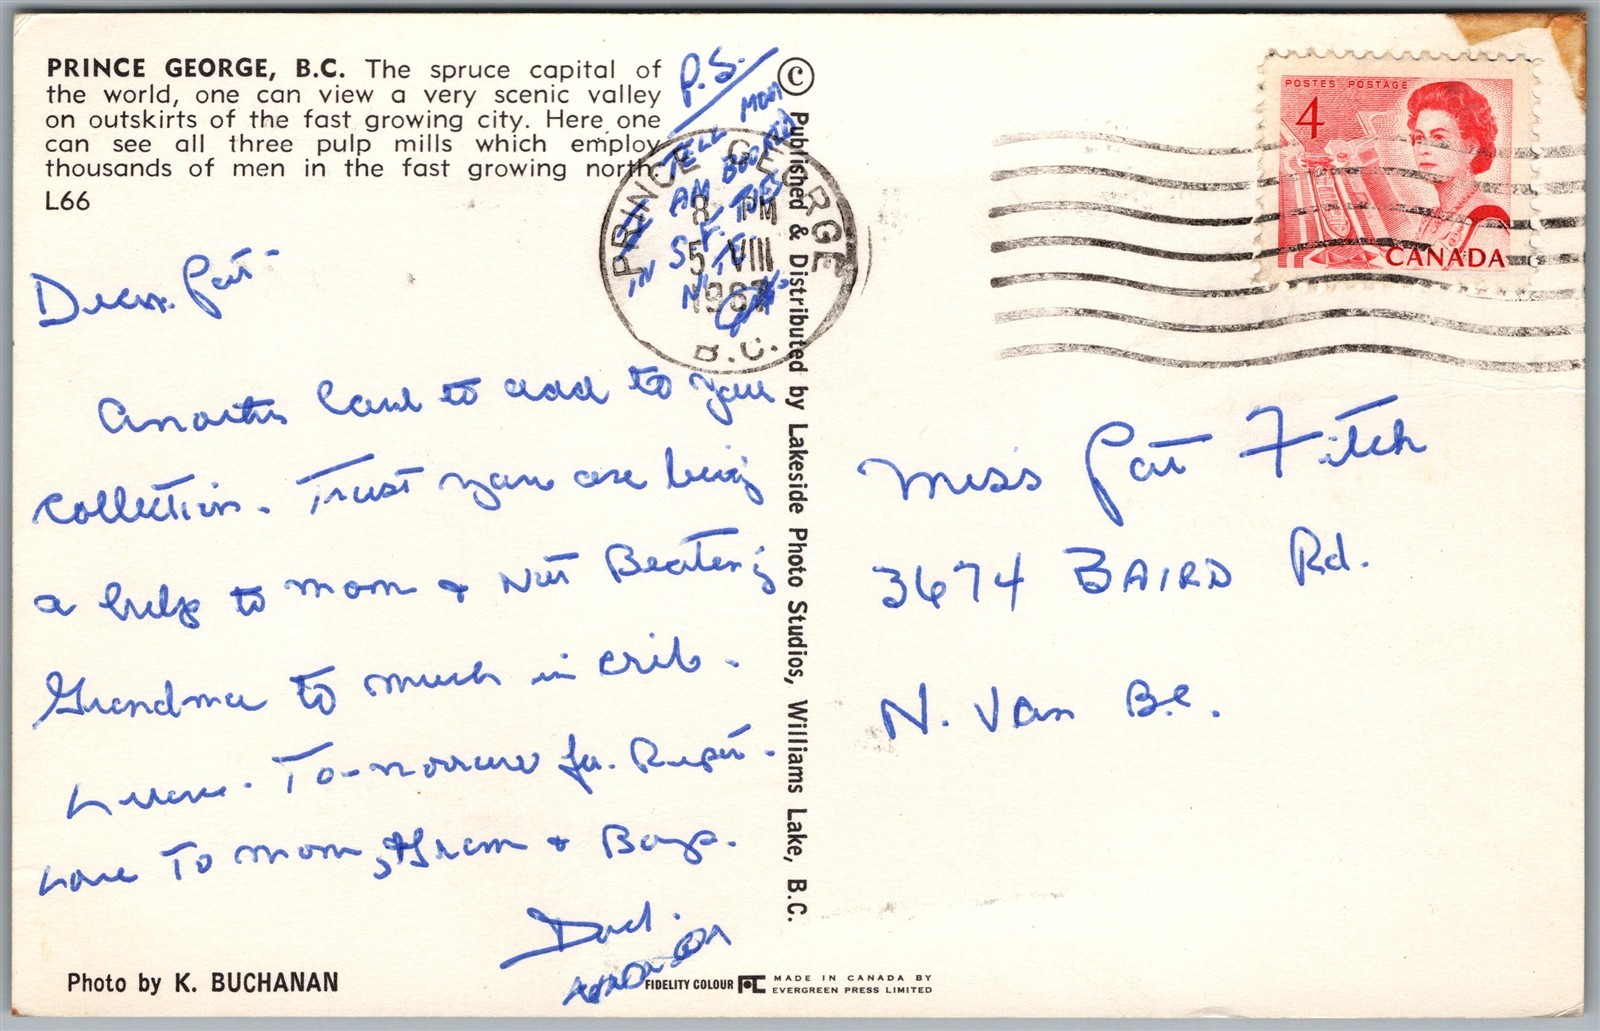 PRINCE GEORGE, B.C. The spruce capital of
the world, one can view a very scenic valley
on outskirts of the fast growing city. Here one
can see all three pulp mills which employ
thousands of men in the fast growing north.
L66
P.S.
TELL MOM
AM BOARD
IN ST.
Dear Pat -
Another card to add to your
collection. Trust you are being
a help to mom & Not Beating
Grandma to much in crib.
Leave. To-morrow for Rupert.
Love To mom, Gram & Boys.
Dad.
Photo by K. BUCHANAN
FIDELITY COLOUR
MADE IN CANADA BY
EVERGREEN PRESS LIMITED
© Published & Distributed by Lakeside Photo Studios, Williams Lake, B.C.
PRINCE GEORGE
8 PM
5 VIII
1967
B.C.
POSTES POSTAGE
4
CANADA
Miss Pat Fitch
3674 BAIRD Rd.
N. Van B.C.